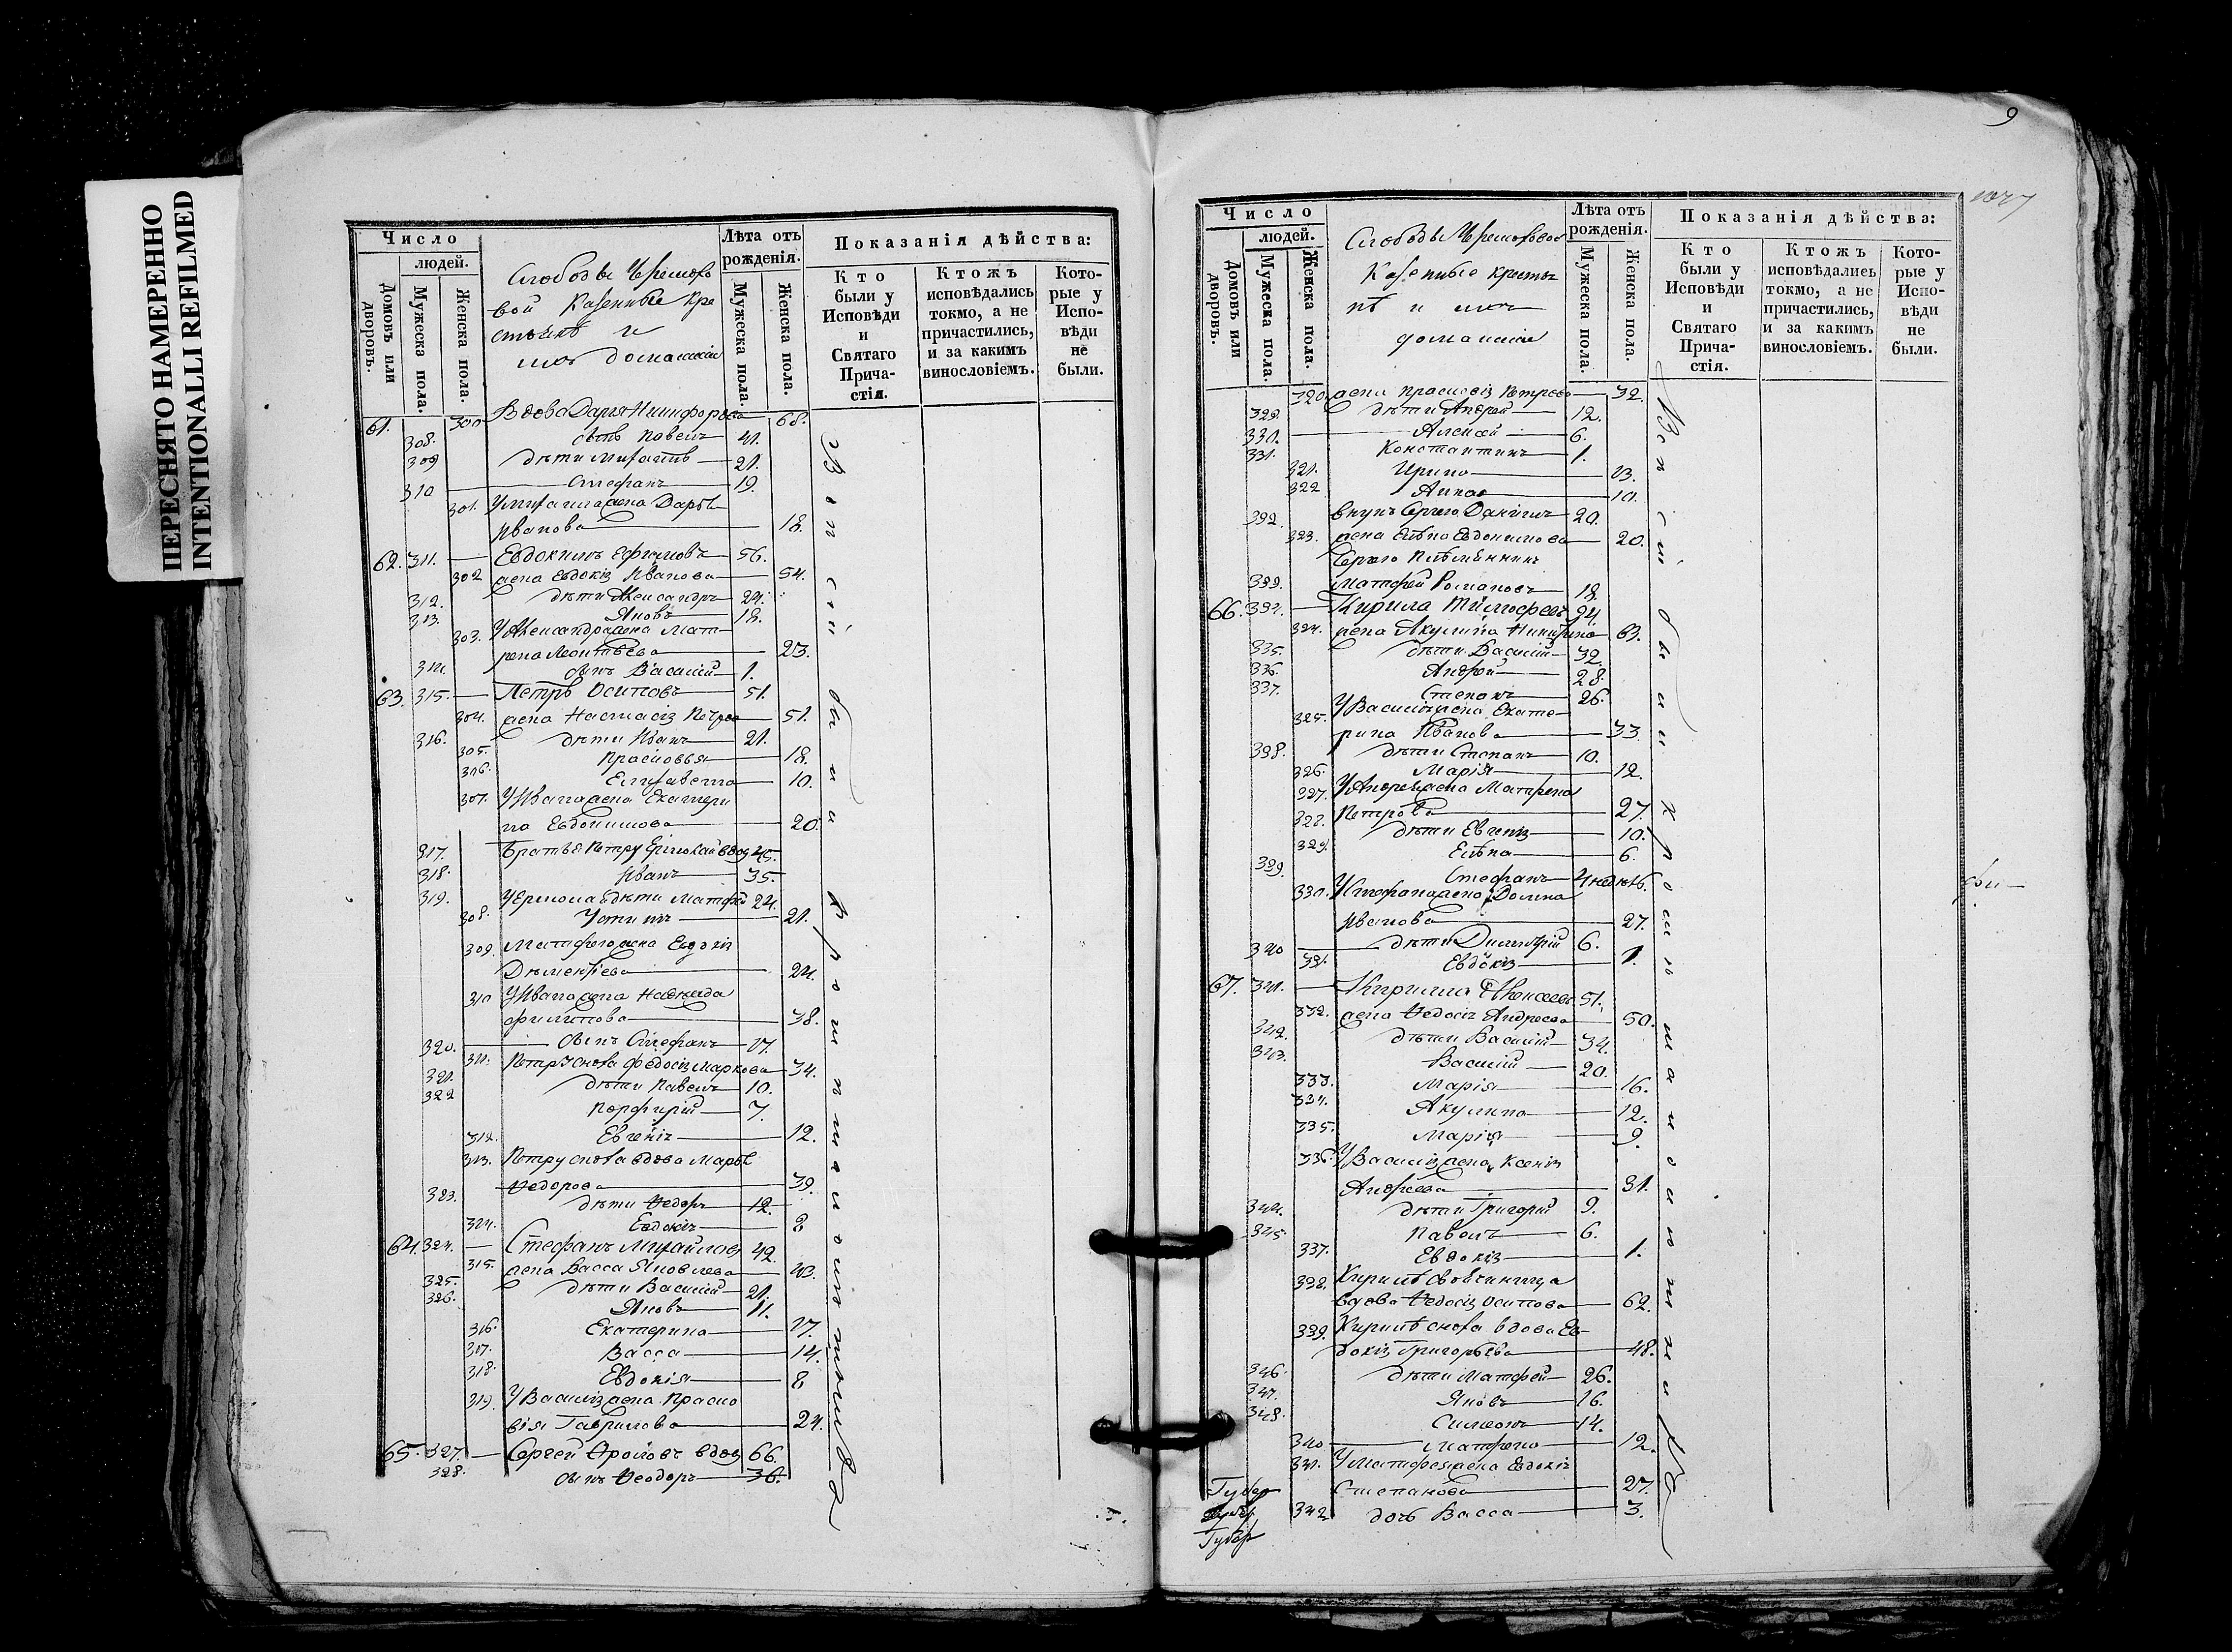 ПЕРЕСНЯТО НАМЕРЕННО
INTENTIONALLI REFILMED
Число
людей.
Домовъ или дворовъ.
Мужеска пола.
Женска пола.
Слободы Черемхо
вой Казенные кре
стьянѣ и
ихъ домашніи
Лѣта отъ рожденія.
Мужеска пола.
Женска пола.
Показанія дѣйства:
Кто были у Исповѣди и Святаго Прича-стія.
Ктожъ исповѣдались токмо, а не причастились, и за какимъ винословіемъ.
Кото-рые у Испо-вѣди не были.
61. 300 Вдова Дарья Никифорова 68.
308. сынъ Павелъ 41.
309 дѣти Михаилъ 21.
310 Стефанъ 19.
301. У Михаила жена Дарья
Иванова 18.
62. 311. Евдокимъ Ефимовъ 56.
302 жена Евдокія Иванова 54.
312. дѣти Александръ 24.
313. Яковъ 18.
303. У Александра жена Мат-
рена Леонтьева 23.
314. сынъ Василій 1.
63. 315. Петръ Осиповъ 51.
304. жена Настасія Петрова 51.
316. дѣти Иванъ 21.
305. Прасковья 18.
306. Елизавета 10.
307. У Ивана жена Екатери
на Евдокимова 20.
317. Братья Петру 45.
318. Иванъ 35.
319. У Ермолая дѣти Матфей 24.
308. 21.
309. Матфея жена Евдокія
Дементіева 24.
310 У Ивана жена Надежда
Филипова 38.
320. сынъ Стефанъ 17.
311. Петру сноха Федосія Маркова 34.
321. дѣти Павелъ 10.
322 Порфирій 7.
312. Евгенія 12.
313. Петру сноха вдова Марья
Ѳедорова 39.
323. дѣти Ѳедоръ 12.
314. Евдокія 8
64. 324. Стефанъ Михайловъ 42.
315. жена Васса Яковлева 43.
325. дѣти Василій 21.
326. Яковъ 11.
316. Екатерина 17.
317. Васса 14.
318. Евдокія 8
319. У Василія жена Праско
вія Гаврилова 24.
65. 327. Сергей Фроловъ вдов 66.
328. сынъ Ѳеодоръ 36.
Вси сіи были
9
Число
людей.
Домовъ или дворовъ.
Мужеска пола.
Женска пола.
Слободы Черемховой
Казенные крестья
нѣ и ихъ
домашніи
Лѣта отъ рожденія.
Мужеска пола.
Женска пола.
Показанія дѣйства:
Кто были у Исповѣди и Святаго Прича-стія.
Ктожъ исповѣдались токмо, а не причастились, и за какимъ винословіемъ.
Кото-рые у Испо-вѣди не были.
320. жена Прасковія Петрова 32.
329. дѣти Андрей 12.
330. Алексѣй 6.
331. Константинъ 1.
321. Ирина 13.
322 Анна 10.
332. внукъ Сергея Данилъ 20.
323. жена Елѣна Евдокимова 20.
Сергея племянникъ
333. Матфей Романовъ 18.
66. 334. Кирила Тимофеевъ 94.
324. жена Акулина Никитина 63.
335. дѣти Василій 32.
336. Андрей 28.
337. Степанъ 26.
325. У Василія жена Екате-
рина Иванова 33
338. дѣти Степанъ 10.
326. Марія 12.
327. У Андрея жена Матрена
Петрова 27.
328. дѣти Евгенія 10.
329. Елѣна 6.
339. Стефанъ 4 недѣль
330. У Стефана жена Домна
Иванова 27.
340 дѣти Димитрій 6.
331. Евдокія 1.
67. 341. Кирилла Алексеевъ 51.
332. жена Ѳедосія Андреева 50.
342. дѣти Василій 34.
343. Василій 20.
333. Марія 16.
334. Акулина 12.
335. Марія 9.
336. У Василія жена Ксенія
Андреева 31.
344. дѣти Григорій 9.
345. Павелъ 6.
337. Евдокія 1.
338.
вдова Ѳедосія Осипова 62.
339. Кирилѣ сноха вдова Ев-
докія Григорьева 48.
346. дѣти Матфей 26.
347. Яковъ 16.
348. Симеонъ 14.
340 Матрена 12.
341. У Матфея жена Евдокія
Степанова 27.
342 дочь Васса 3.
Вси сіи были